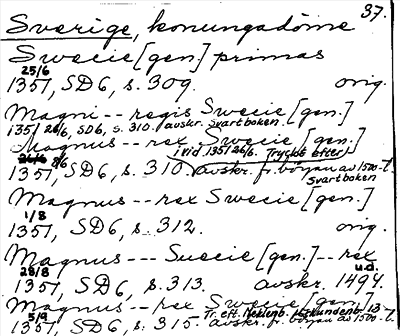 37.
Sverige, konungadöme
Swecie [gen.] primas
25/6
1351, SD6, s. 309. orig.
Magni -- regis Swecie [gen.]
1351 26/6, SD6, s. 310. avskr. Svartboken.
Magnus -- rex Swecie [gen.]
(vid. 1351 26/6. Tryckt efter)
8/6
1351, SD6, s. 310. avskr. fr. början av 1500-t.
Svartboken
Magnus -- rex Swecie [gen.]
1/8
1351, SD6, s. 312. orig.
Magnus --- Suecie [gen.] -- rex
28/8 u.d.
1351, SD6, s. 313. avskr. 1494.
Magnus -- rex Swecie [gen.]
5/9 Tr. eft. Meklenb. Urkundenb. 13
1351, SD6, s. 315. avskr. fr. början av 1500-t.